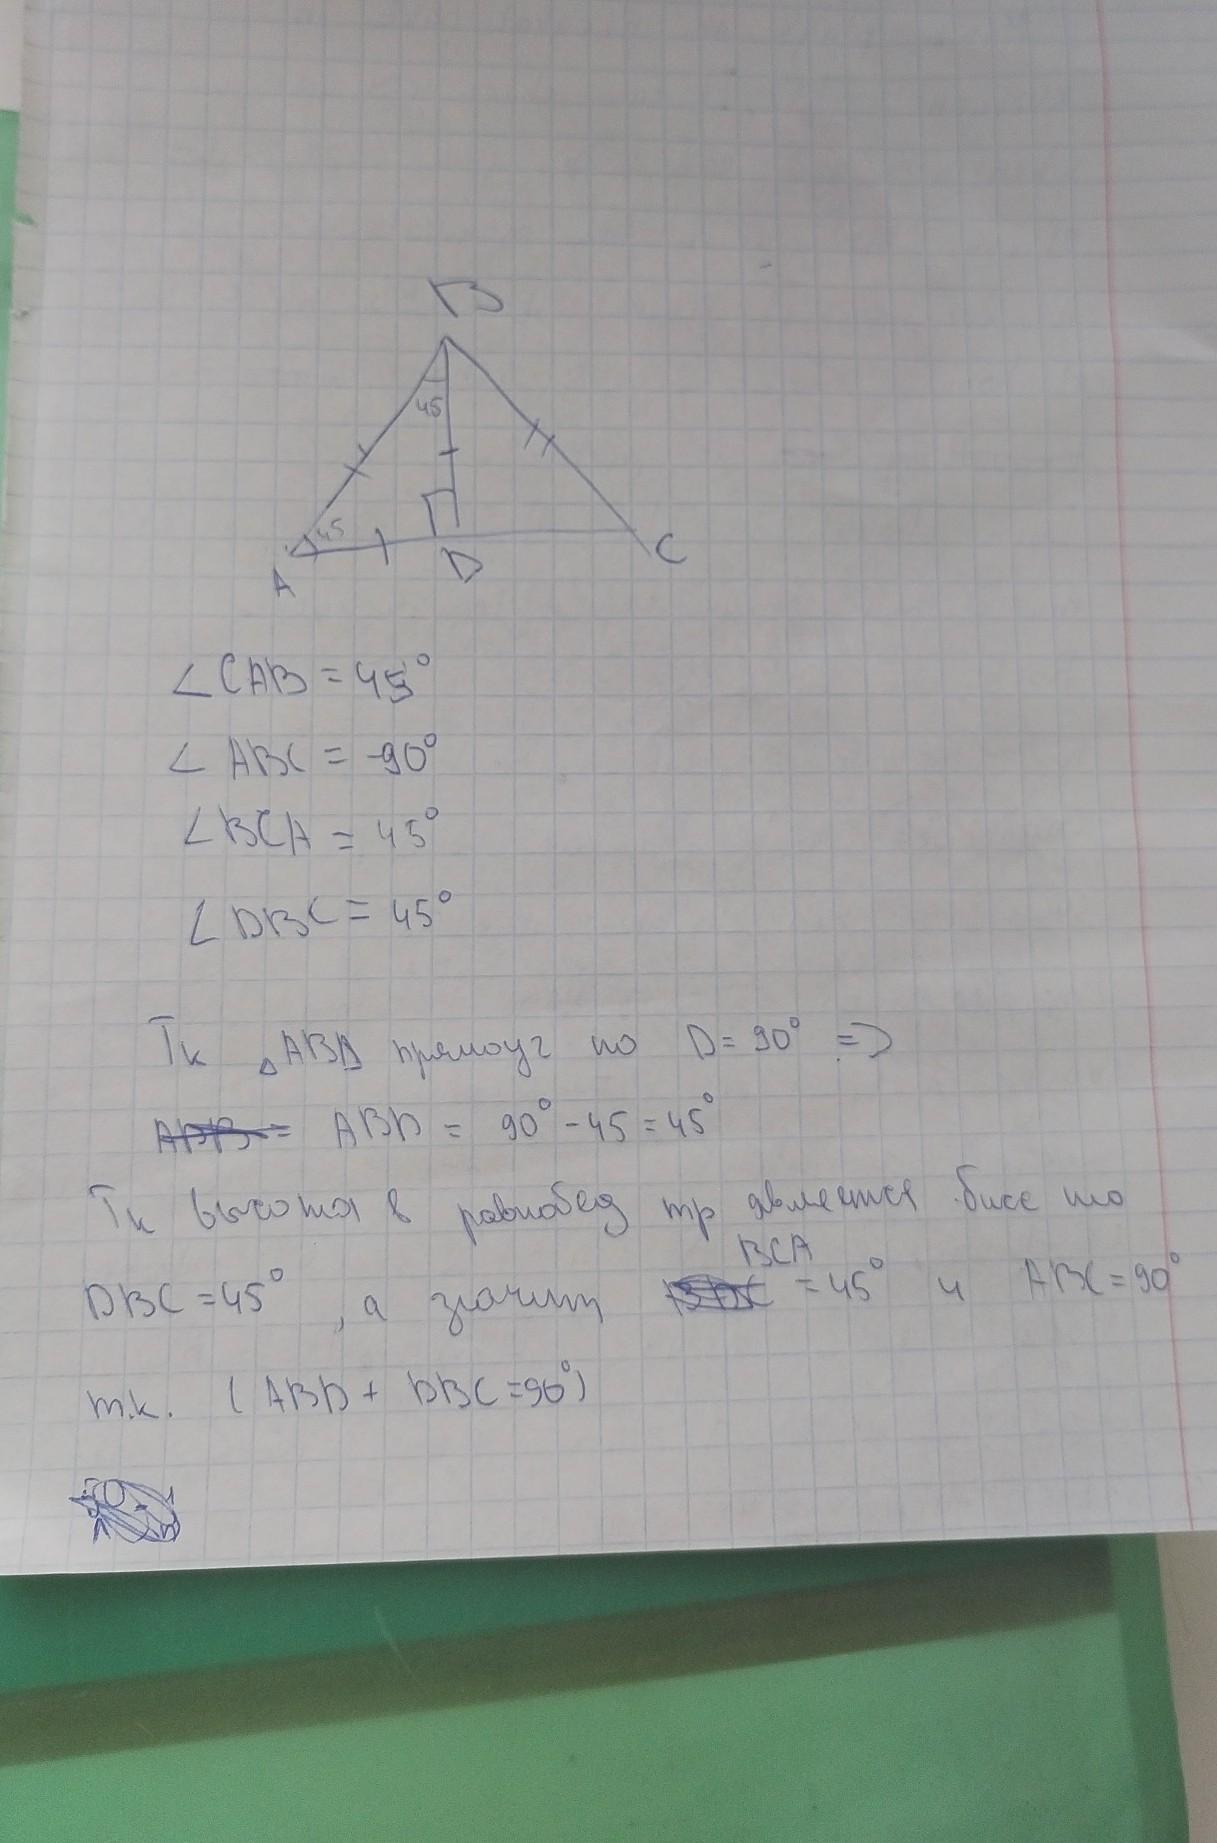 B
45
45
A
D
C
∠CAB = 45°
∠ABC = 90°
∠BCA = 45°
∠DBC = 45°
Тк △ABD прямоуг по D = 90° =>
ABD = 90° - 45 = 45°
Тк высота в равнобед тр является бисс то
BCA
DBC = 45°, а значит = 45° и ABC = 90°
т.к. (ABD + DBC = 90°)